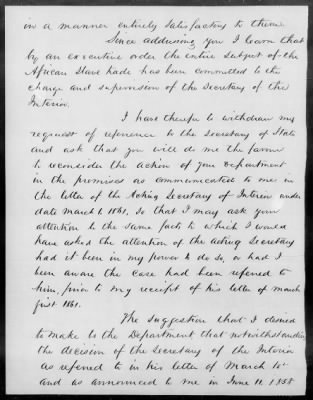 in a manner entirely satisfactory to them.
Since addressing you I learn that
by an executive order the entire subject of the
African Slave trade has been committed to the
charge and supervision of the Secretary of the
Interior.
I have therefore to withdraw my
request of reference to the Secretary of State
and ask that you will do me the favor
to reconsider the action of your Department
in the premises as communicated to me in
the letter of the Acting Secretary of Interior under
date March 1 1861. So that I may ask your
attention to the same facts to which I would
have asked the attention of the acting Secretary
had it been in my power to do so, or had I
been aware the case had been referred to
him, prior to my receipt of his letter of march
first 1861.
The suggestion that I desired
to make to the Department that notwithstanding
the decision of the Secretary of the Interior
as referred to in his letter of March 1st
and as announced to me in June 11. 1858